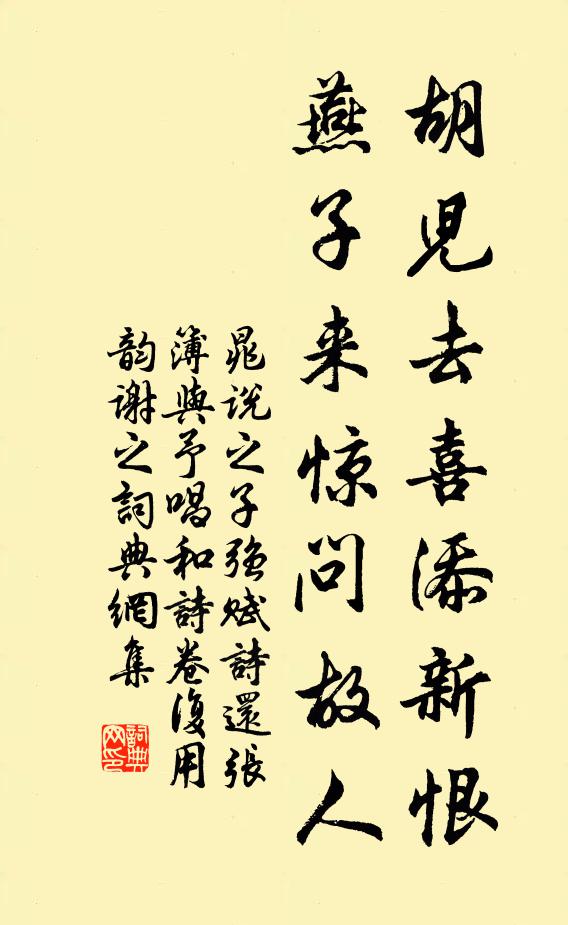 胡児去喜添新恨
燕子来惊问故人
晁说之子强赋詩還張
簿與予唱和詩卷復用
韵谢之詞典網集
詞典网印